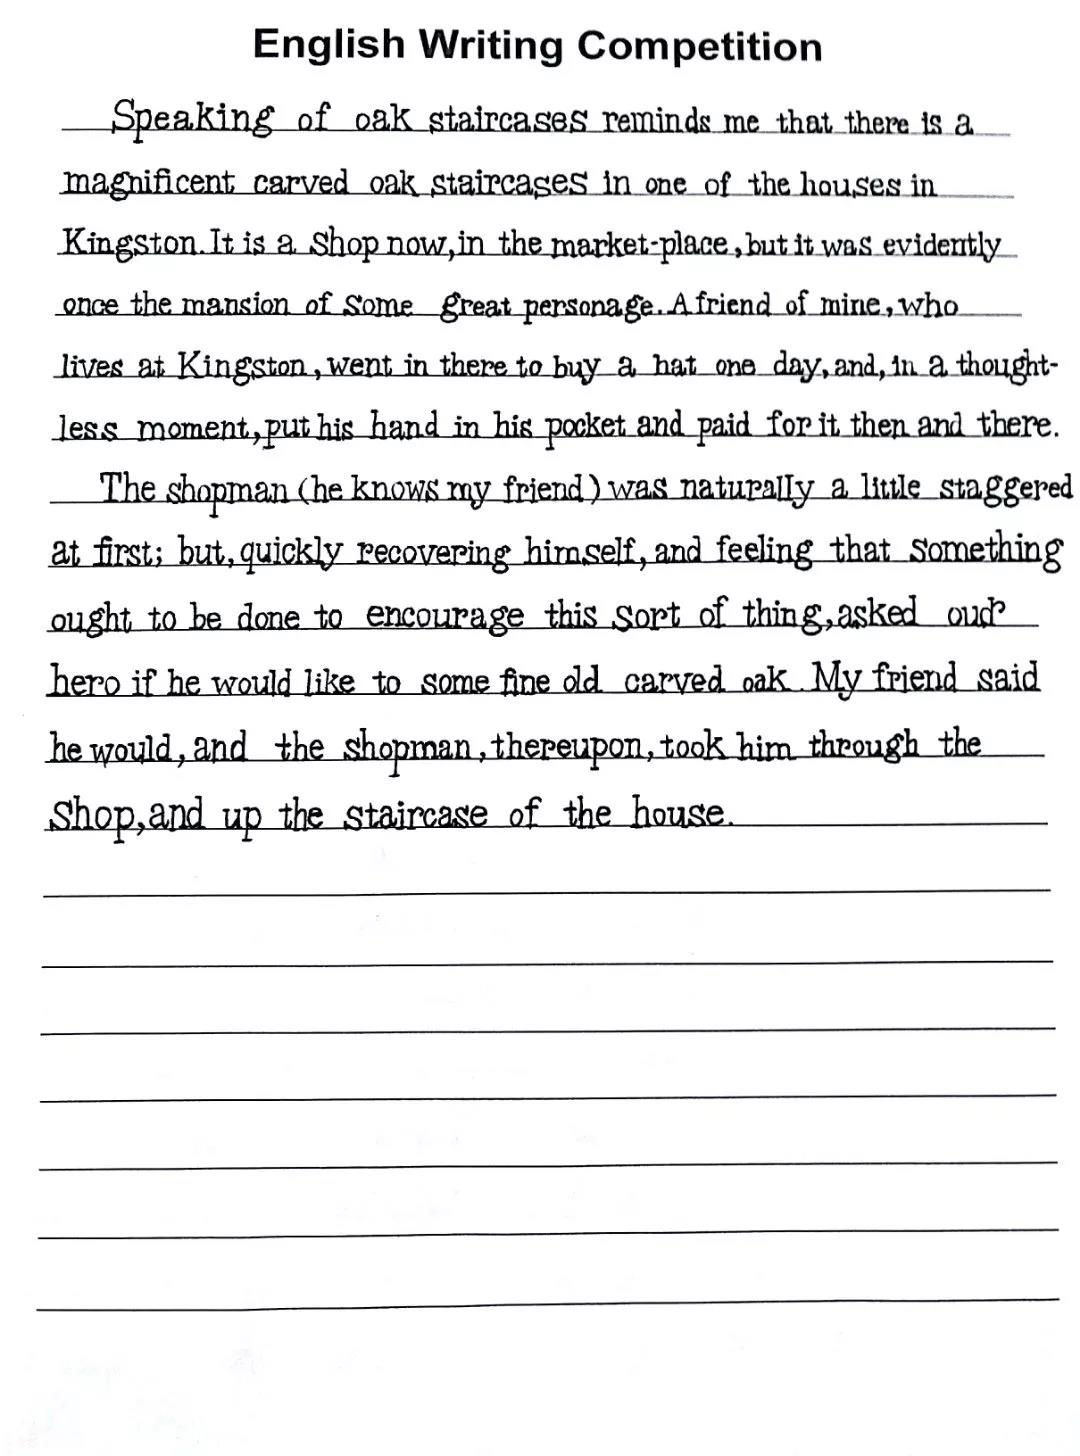 English Writing Competition
Speaking of oak staircases reminds me that there is a
magnificent carved oak staircases in one of the houses in
Kingston. It is a Shop now, in the market-place, but it was evidently
once the mansion of Some great personage. A friend of mine, who
lives at Kingston, went in there to buy a hat one day, and, in a thought-
less moment, put his hand in his pocket and paid for it then and there.
The shopman (he knows my friend) was naturally a little staggered
at first; but, quickly recovering himself, and feeling that Something
ought to be done to encourage this sort of thing, asked our
hero if he would like to some fine old carved oak. My friend said
he would, and the shopman, thereupon, took him through the
Shop, and up the staircase of the house.